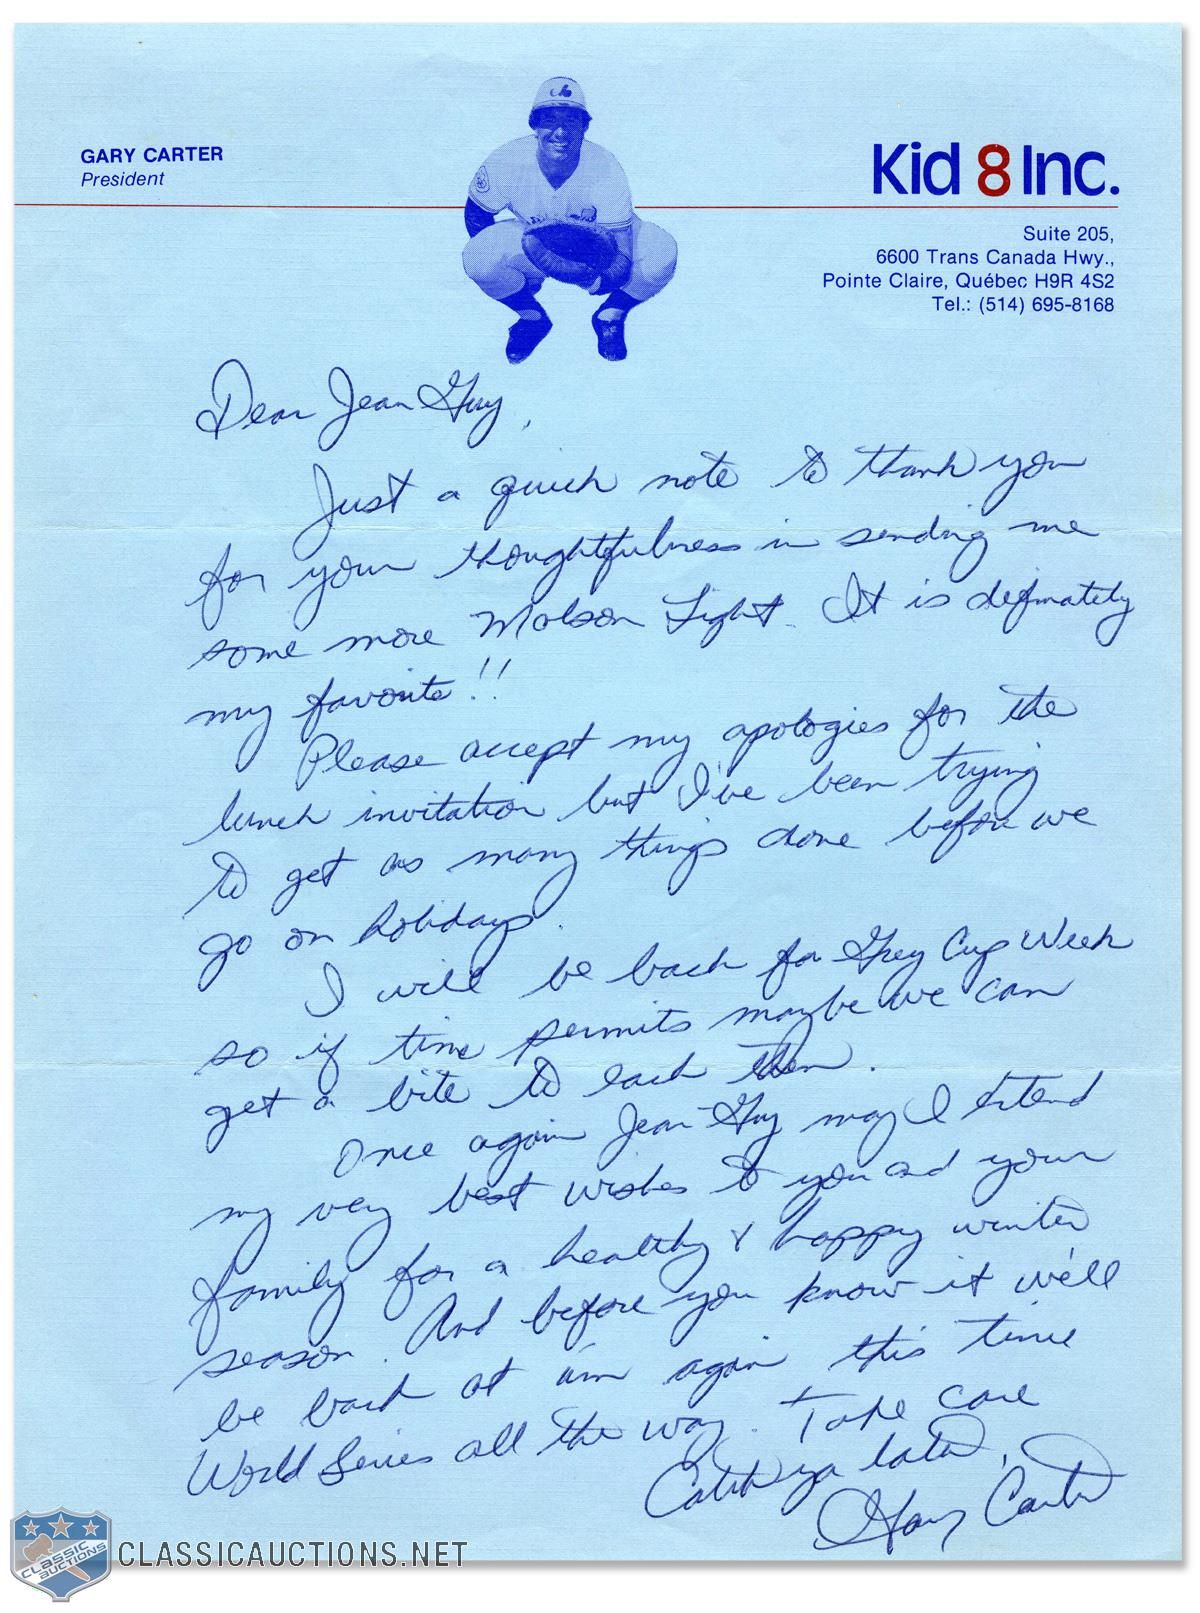 GARY CARTER
President
Kid 8 Inc.
Suite 205,
6600 Trans Canada Hwy.,
Pointe Claire, Québec H9R 4S2
Tel.: (514) 695-8168
Dear Jean Guy,
Just a quick note to thank you
for your thoughtfulness in sending me
some more Molson Light. It is definately
my favorite!!
Please accept my apologies for the
lunch invitation but I've been trying
to get as many things done before we
go on holidays.
I will be back for Grey Cup Week
so if time permits maybe we can
get a bite to each then.
Once again Jean-Guy may I extend
my very best wishes to you and your
family for a healthy & happy winter
season. And before you know it we'll
be back at 'em again this time
World Series all the way. Take care
Catch ya later,
Gary Carter
CLASSIC AUCTIONS
CLASSICAUCTIONS.NET